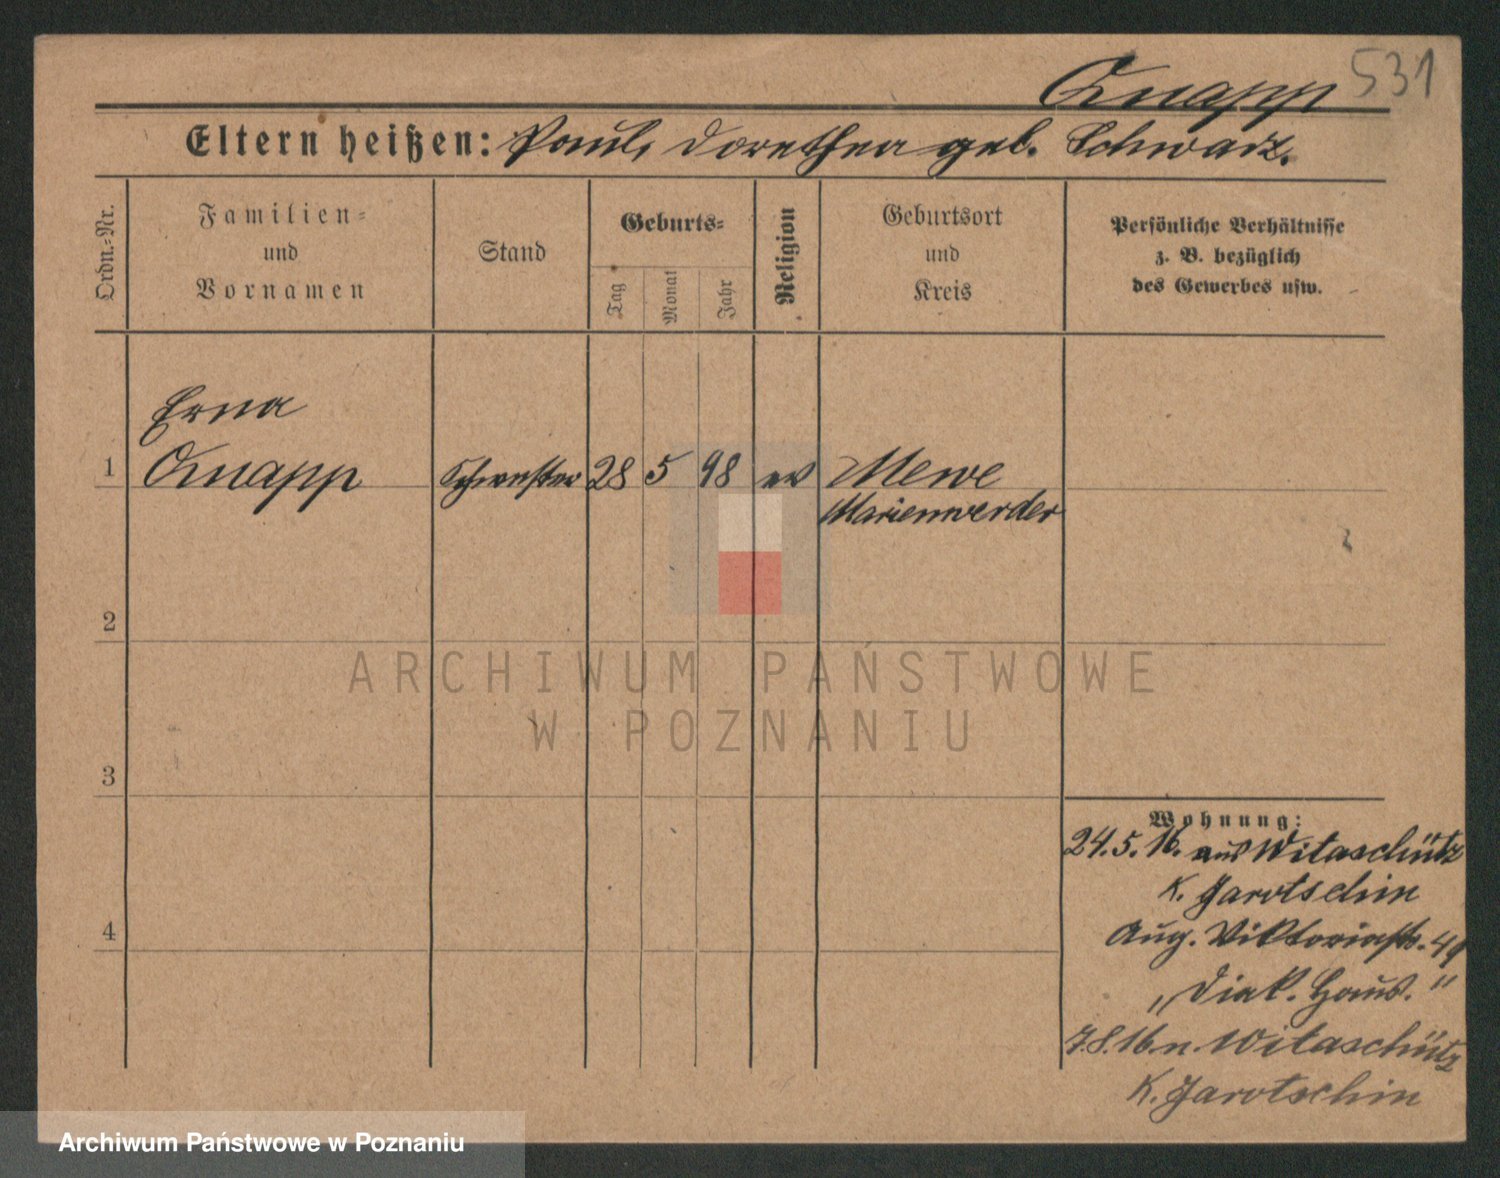 Knapp 531
Eltern heißen: Paul, Dorothea geb. Schwarz.
Ordn.-Nr.
Familien-
und
Vornamen
Stand
Geburts-
Tag
Monat
Jahr
Religion
Geburtsort
und
Kreis
Persönliche Verhältnisse
z. B. bezüglich
des Gewerbes usw.
Erna
1 Knapp Schwester 28 5 98 ev Mewe
Marienwerder
2
ARCHIWUM PAŃSTWOWE
W POZNANIU
3
Wohnung:
24.5.16. aus Witaschütz
K. Jarotschin
4 Aug. Viktoriastr. 49
"Diak. Haus."
7.8.16 n. Witaschütz
K. Jarotschin
Archiwum Państwowe w Poznaniu